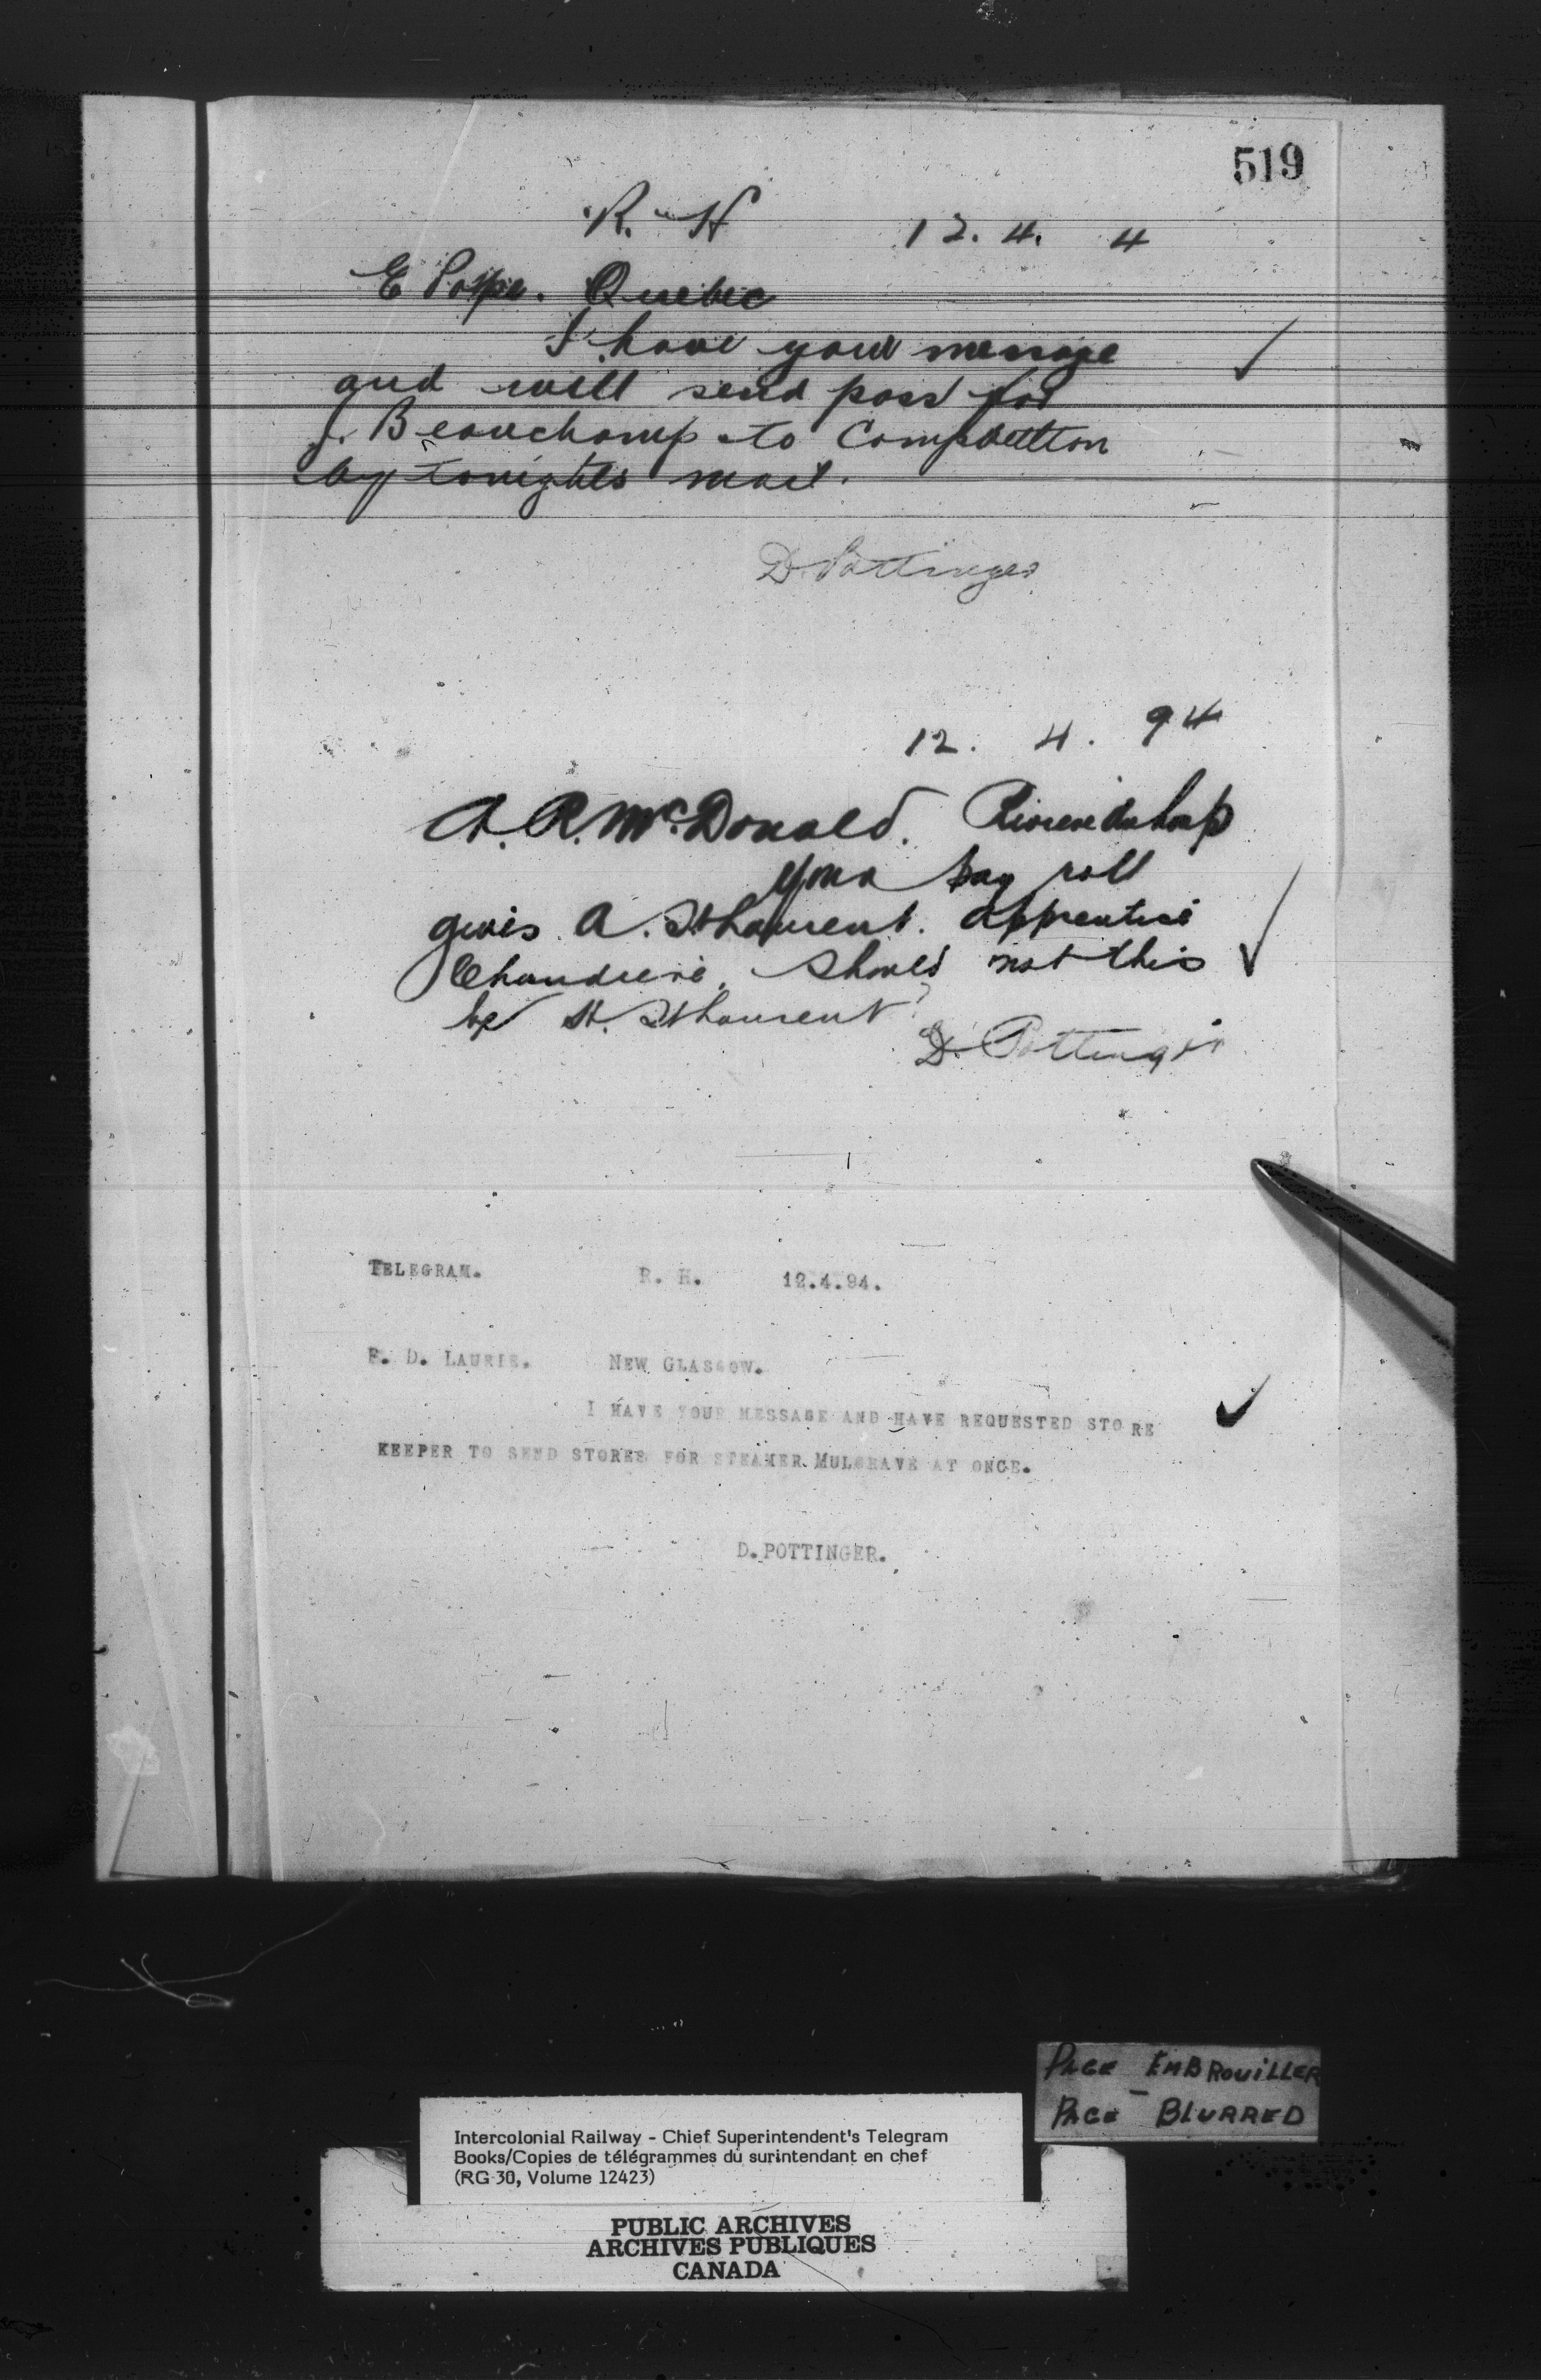 519
R. H 12. 4. 4
E Pope. Quebec
I have your message
and will send pass for
J. Beauchamp to Campbellton
by tonights mail.
D. Pottinger
12. 4. 94
A. R. McDonald. Riviere du Loup
Your pay roll
gives A. St Laurent. apprentice
Chaudiere. Should not this
be H. St Laurent?
D. Pottinger
TELEGRAM. R. H. 12.4.94.
F. D. LAURIE. NEW GLASGOW.
I HAVE YOUR MESSAGE AND HAVE REQUESTED STORE
KEEPER TO SEND STORES FOR STEAMER MULGRAVE AT ONCE.
D. POTTINGER.
PAGE EMBROUILLER
PAGE BLURRED
Intercolonial Railway - Chief Superintendent's Telegram
Books/Copies de télégrammes du surintendant en chef
(RG 30, Volume 12423)
PUBLIC ARCHIVES
ARCHIVES PUBLIQUES
CANADA